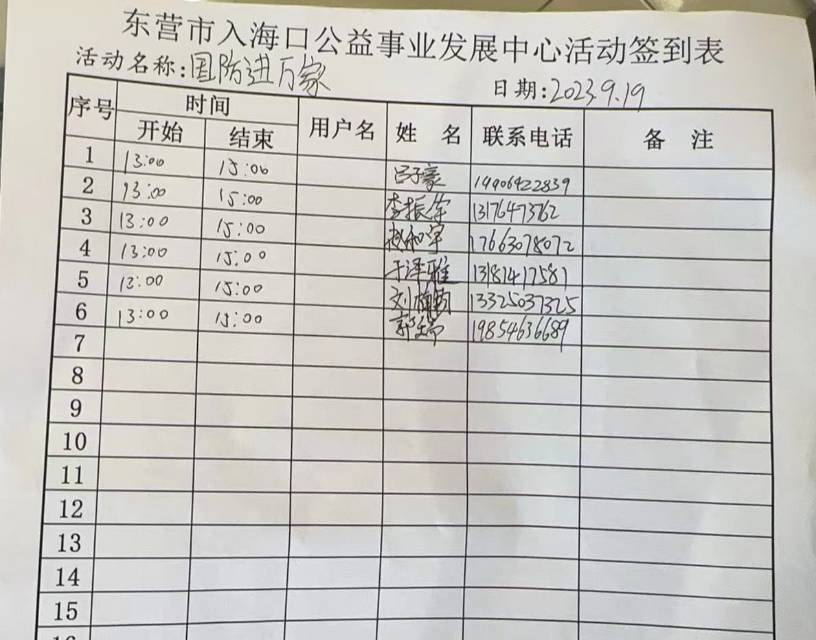 东营市入海口公益事业发展中心活动签到表
活动名称:国防进万家 日期:2023.9.19
序号 时间 用户名 姓名 联系电话 备注
开始 结束
1 13:00 15:00 吕子豪 19906422839
2 13:00 15:00 李振宇 13176473762
3 13:00 15:00 赵和宇 17663078072
4 13:00 15:00 于泽雅 13181417581
5 13:00 15:00 刘 13325037325
6 13:00 15:00 郭瑞 19854636689
7
8
9
10
11
12
13
14
15